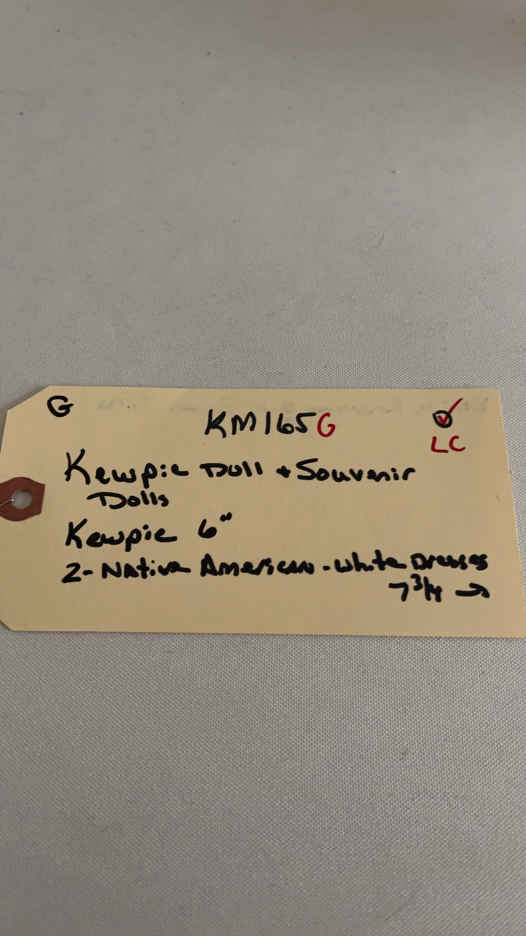 G
KM165G
LC
Kewpie Doll + Souvenir
Dolls
Kewpie 6"
2- Native American - White Dresses
7 3/4 →